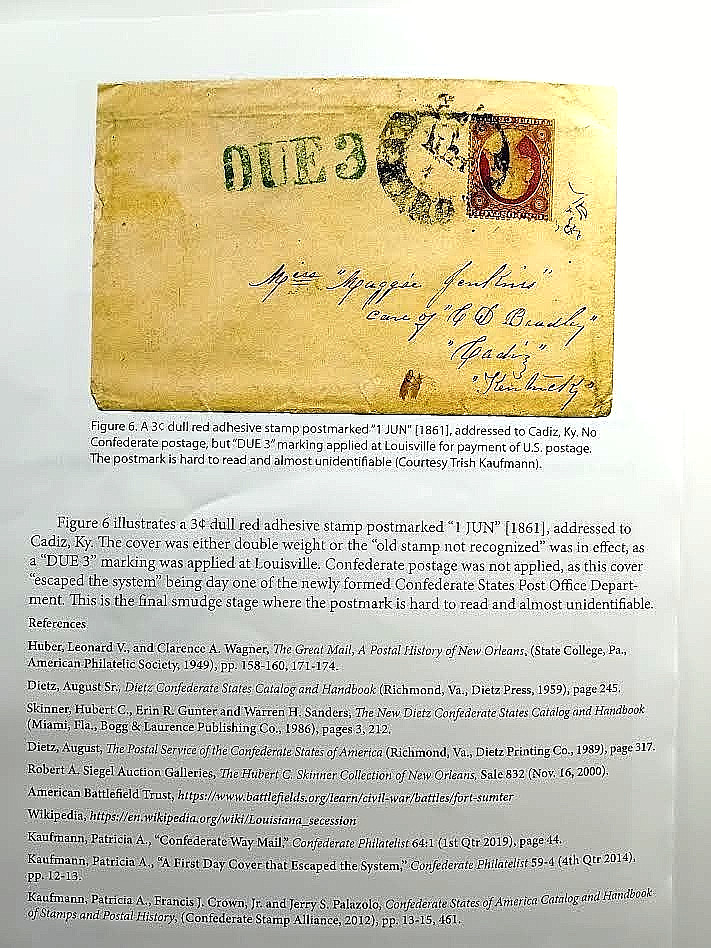 DUE 3
Miss "Maggie Jenkins"
care of "C D Bradley"
"Cadiz"
"Kentucky"
Figure 6. A 3¢ dull red adhesive stamp postmarked “1 JUN” [1861], addressed to Cadiz, Ky. No
Confederate postage, but “DUE 3” marking applied at Louisville for payment of U.S. postage.
The postmark is hard to read and almost unidentifiable (Courtesy Trish Kaufmann).
Figure 6 illustrates a 3¢ dull red adhesive stamp postmarked “1 JUN” [1861], addressed to
Cadiz, Ky. The cover was either double weight or the “old stamp not recognized” was in effect, as
a “DUE 3” marking was applied at Louisville. Confederate postage was not applied, as this cover
“escaped the system” being day one of the newly formed Confederate States Post Office Depart-
ment. This is the final smudge stage where the postmark is hard to read and almost unidentifiable.
References
Huber, Leonard V., and Clarence A. Wagner, The Great Mail, A Postal History of New Orleans, (State College, Pa.,
American Philatelic Society, 1949), pp. 158-160, 171-174.
Dietz, August Sr., Dietz Confederate States Catalog and Handbook (Richmond, Va., Dietz Press, 1959), page 245.
Skinner, Hubert C., Erin R. Gunter and Warren H. Sanders, The New Dietz Confederate States Catalog and Handbook
(Miami, Fla., Bogg & Laurence Publishing Co., 1986), pages 3, 212.
Dietz, August, The Postal Service of the Confederate States of America (Richmond, Va., Dietz Printing Co., 1989), page 317.
Robert A. Siegel Auction Galleries, The Hubert C. Skinner Collection of New Orleans, Sale 832 (Nov. 16, 2000).
American Battlefield Trust, https://www.battlefields.org/learn/civil-war/battles/fort-sumter
Wikipedia, https://en.wikipedia.org/wiki/Louisiana_secession
Kaufmann, Patricia A., “Confederate Way Mail,” Confederate Philatelist 64:1 (1st Qtr 2019), page 44.
Kaufmann, Patricia A., “A First Day Cover that Escaped the System,” Confederate Philatelist 59-4 (4th Qtr 2014),
pp. 12-13.
Kaufmann, Patricia A., Francis J. Crown, Jr. and Jerry S. Palazolo, Confederate States of America Catalog and Handbook
of Stamps and Postal History, (Confederate Stamp Alliance, 2012), pp. 13-15, 461.